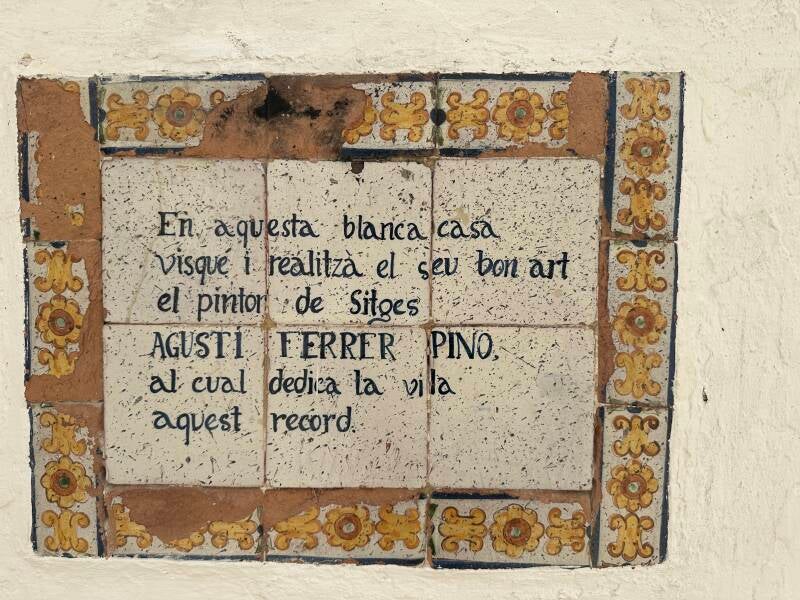 En aquesta blanca casa
visqué i realitzà el seu bon art
el pintor de Sitges
AGUSTÍ FERRER PINO,
al cual dedica la vila
aquest record.